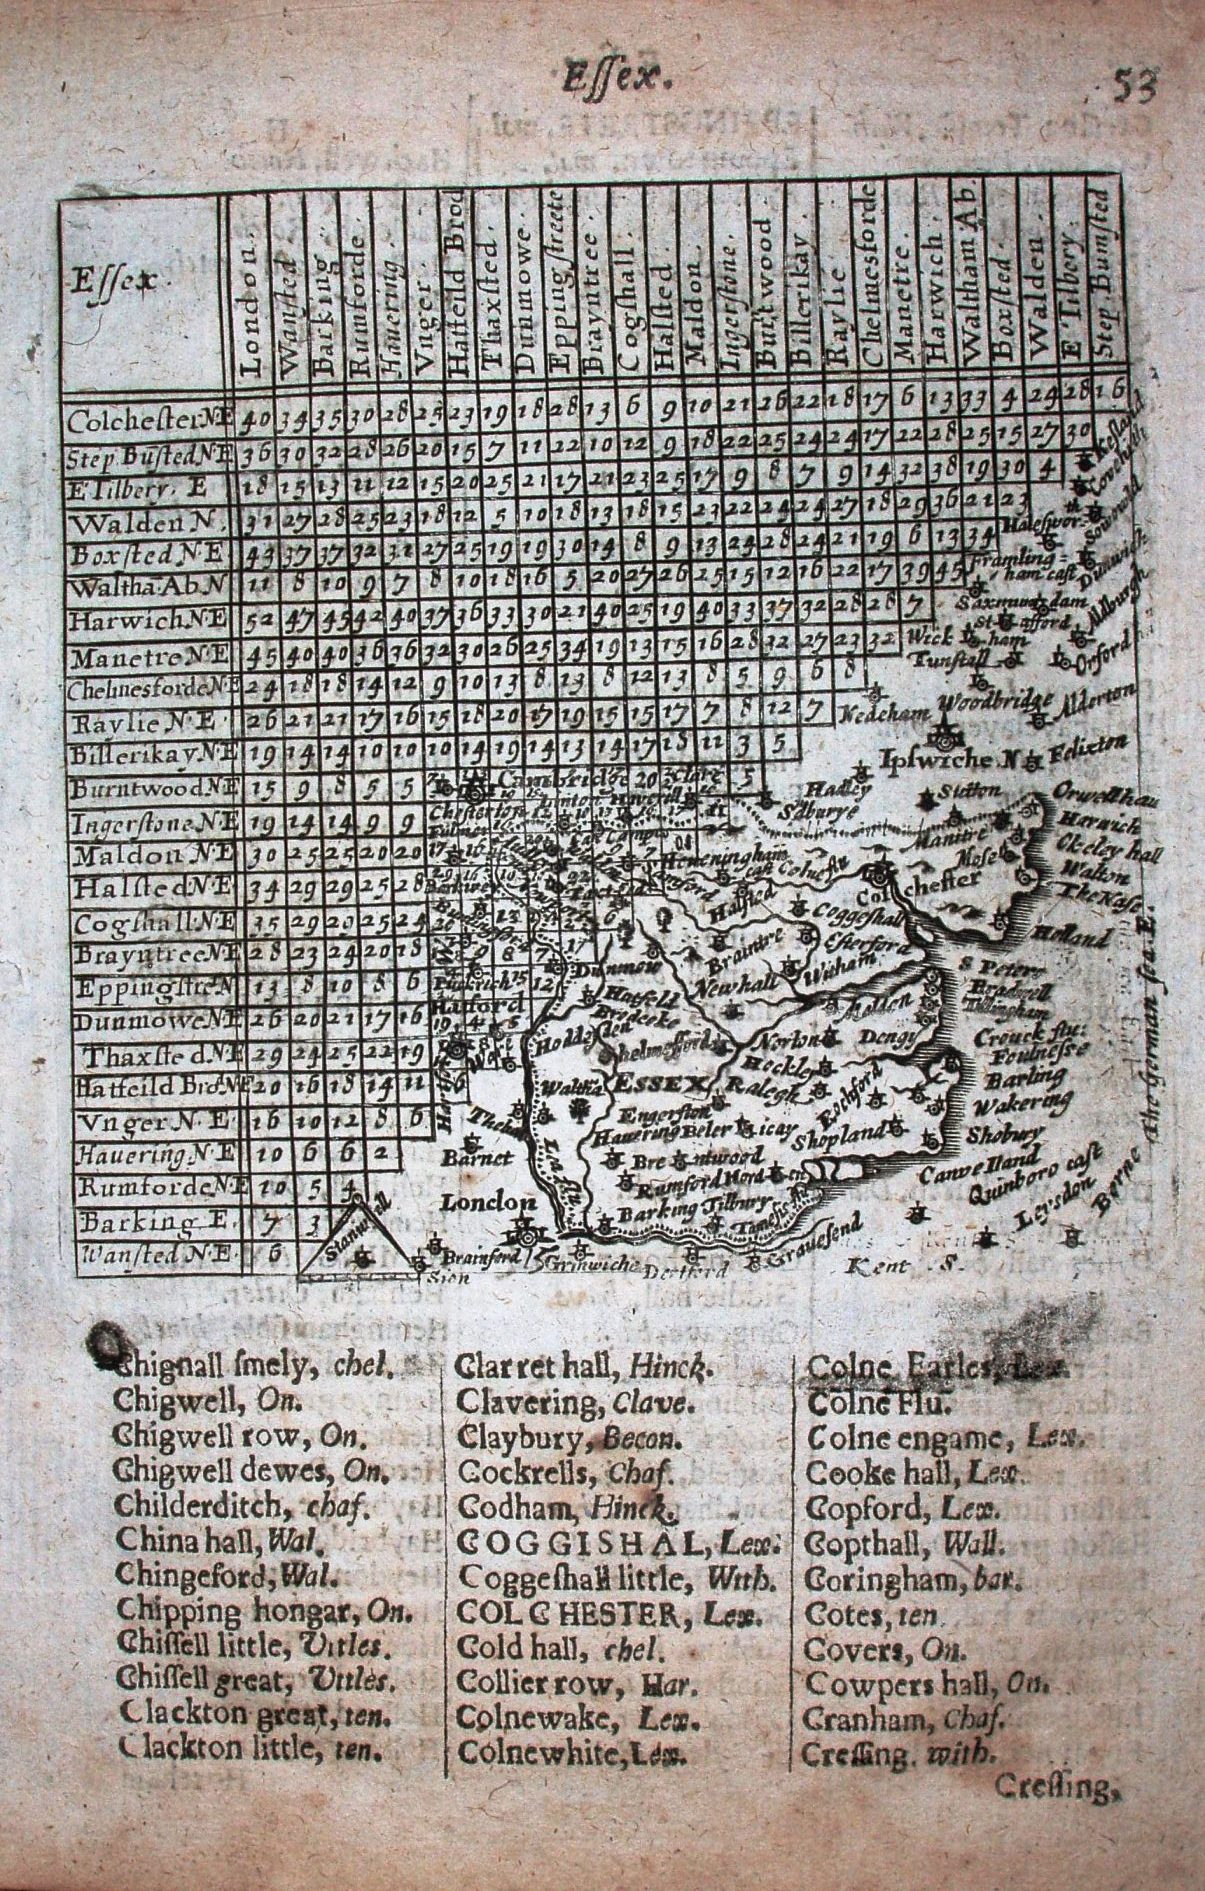 Eſſex.
53
Eſſex.
London.
Wanſted
Barking
Rumforde.
Hauering.
Vnger.
Hatfeild Brod
Thaxſted.
Dunmowe.
Epping ſtreete
Brayntree.
Cogſhall.
Halſted.
Maldon.
Ingerſtone.
Buntwood
Billerikay.
Raylie
Chelmesforde
Manetre.
Harwich.
Waltham Ab.
Boxſted.
Walden
E Tilbery.
Step. Bumſted
Colcheſter N·E 40 34 35 30 28 25 23 19 18 28 13 6 9 10 21 26 22 18 17 6 13 33 4 24 28 16
Step. Buſted N·E 36 30 32 28 26 20 15 7 11 22 10 12 9 18 22 25 24 24 17 22 28 25 15 27 30
E Tilbery. E 18 15 13 11 12 15 20 25 21 17 21 23 25 17 9 8 7 9 14 32 38 19 30 4
Walden N. 31 27 28 25 23 18 12 5 10 18 13 18 15 23 22 24 24 27 18 29 36 21 23
Boxſted N·E 43 37 37 32 31 27 25 19 19 30 14 8 9 13 24 28 24 21 19 6 13 34
Waltha Ab. N 11 8 10 9 7 8 10 18 16 5 20 27 26 25 15 12 16 22 17 39 45
Harwich N·E 52 47 45 42 40 37 36 33 30 21 40 25 19 40 33 37 32 28 28 7
Manetre N·E 45 40 40 36 36 32 30 26 25 34 19 13 15 16 28 32 27 23 32
Chelmesforde N·E 24 18 18 14 12 9 10 13 8 13 8 12 13 8 5 9 6 8
Raylie N·E· 26 21 21 17 16 15 18 20 17 19 15 15 17 7 8 12 7
Billerikay N·E 19 14 14 10 10 10 14 19 14 13 14 17 18 11 3 5
Burntwood N·E 15 9 8 5 5
Ingerſtone N·E 19 14 14 9 9
Maldon N·E 30 25 25 20 20
Halſted N·E 34 29 29 25 28
Cogſhall N·E 35 29 29 25 24
Brayntree N·E 28 23 24 20 18
Eppingſtre N 13 8 10 8 6
Dunmowe N·E 26 20 21 17 16
Thaxſted N·E 29 24 25 22 19
Hatfeild Bro N·E 20 16 18 14 11 6
Vnger N·E· 16 10 12 8 6
Hauering N·E 10 6 6 2
Rumforde N·E 10 5 4
Barking E. 7 3
Wanſted N·E· 6
Keſland
Covehath
Sowould
Haleſwor th
Dunwich
Framling=
ham caſt
Aldburgh
Saxmundam
Wick ham
Tunſtall
Orford
Nedcham
Woodbridge
Alderton
Ipſwiche.N
Felixton
Cambridge 20
Clare
Hadley
Sudburye
Stetton
Orwell hau
Harwich
Manitre
Okeley hall
Moſes
Walton
The Naſe
Holland
Heveningham
caſt
Colne flu
Colcheſter
Halſted
Coggeſhall
Eſterford
Braintre
Witham
Newhall
Dunmow
Hatfeld
Brodeoke
Maldon
S Peters
Bradwell
Tillingham
Crouck flu:
Foulneſse
Barling
Wakering
Shobury
Canve Iland
Quinboro caſt
Leyſdon
Borne
The german ſea. E.
Hatford
Hoddeſden
Chelmefford
Norton
Dengy
Hockley
ESSEX
Ralegh
Rochford
Waltha
Engerſton
Hauering
Beler icay
Shopland
Brentwood
Rumford
Hornden
Barking
Tilbury
Tameſis flu
Barnet
London
Stanwell
Brainford
Sion
Grinwiche
Dertford
Graueſend
Kent . S.
Chignall ſmely, chel.
Chigwell, On.
Chigwell row, On.
Chigwell dewes, On.
Childerditch, chaf.
China hall, Wal.
Chingeford, Wal.
Chipping hongar, On.
Chiſſell little, Vttles.
Chiſſell great, Vttles.
Clackton great, ten.
Clackton little, ten.
Clarret hall, Hinck.
Clavering, Clave.
Claybury, Becon.
Cockrells, Chaf.
Codham, Hinck.
COGGISHAL, Lex.
Coggeſhall little, With.
COLCHESTER, Lex.
Cold hall, chel.
Collier row, Har.
Colnewake, Lex.
Colnewhite, Lex.
Colne Earles, Lex.
Colne Flu.
Colne engame, Lex.
Cooke hall, Lex.
Copford, Lex.
Copthall, Wall.
Coringham, bar.
Cotes, ten.
Covers, On.
Cowpers hall, On.
Cranham, Chaf.
Creſſing. with.
Creſſing,